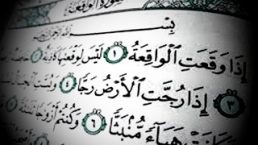 بِسْمِ
إِذَا وَقَعَتِ ٱلْوَاقِعَةُ ١ لَيْسَ لِوَقْعَتِهَا كَاذِبَةٌ ٢
٣ إِذَا رُجَّتِ ٱلْأَرْضُ رَجًّا ٤ وَبُسَّتِ
هَبَآءً مُّنۢبَثًّا ٦ وَكُنتُمْ أَزْوَٰجًا